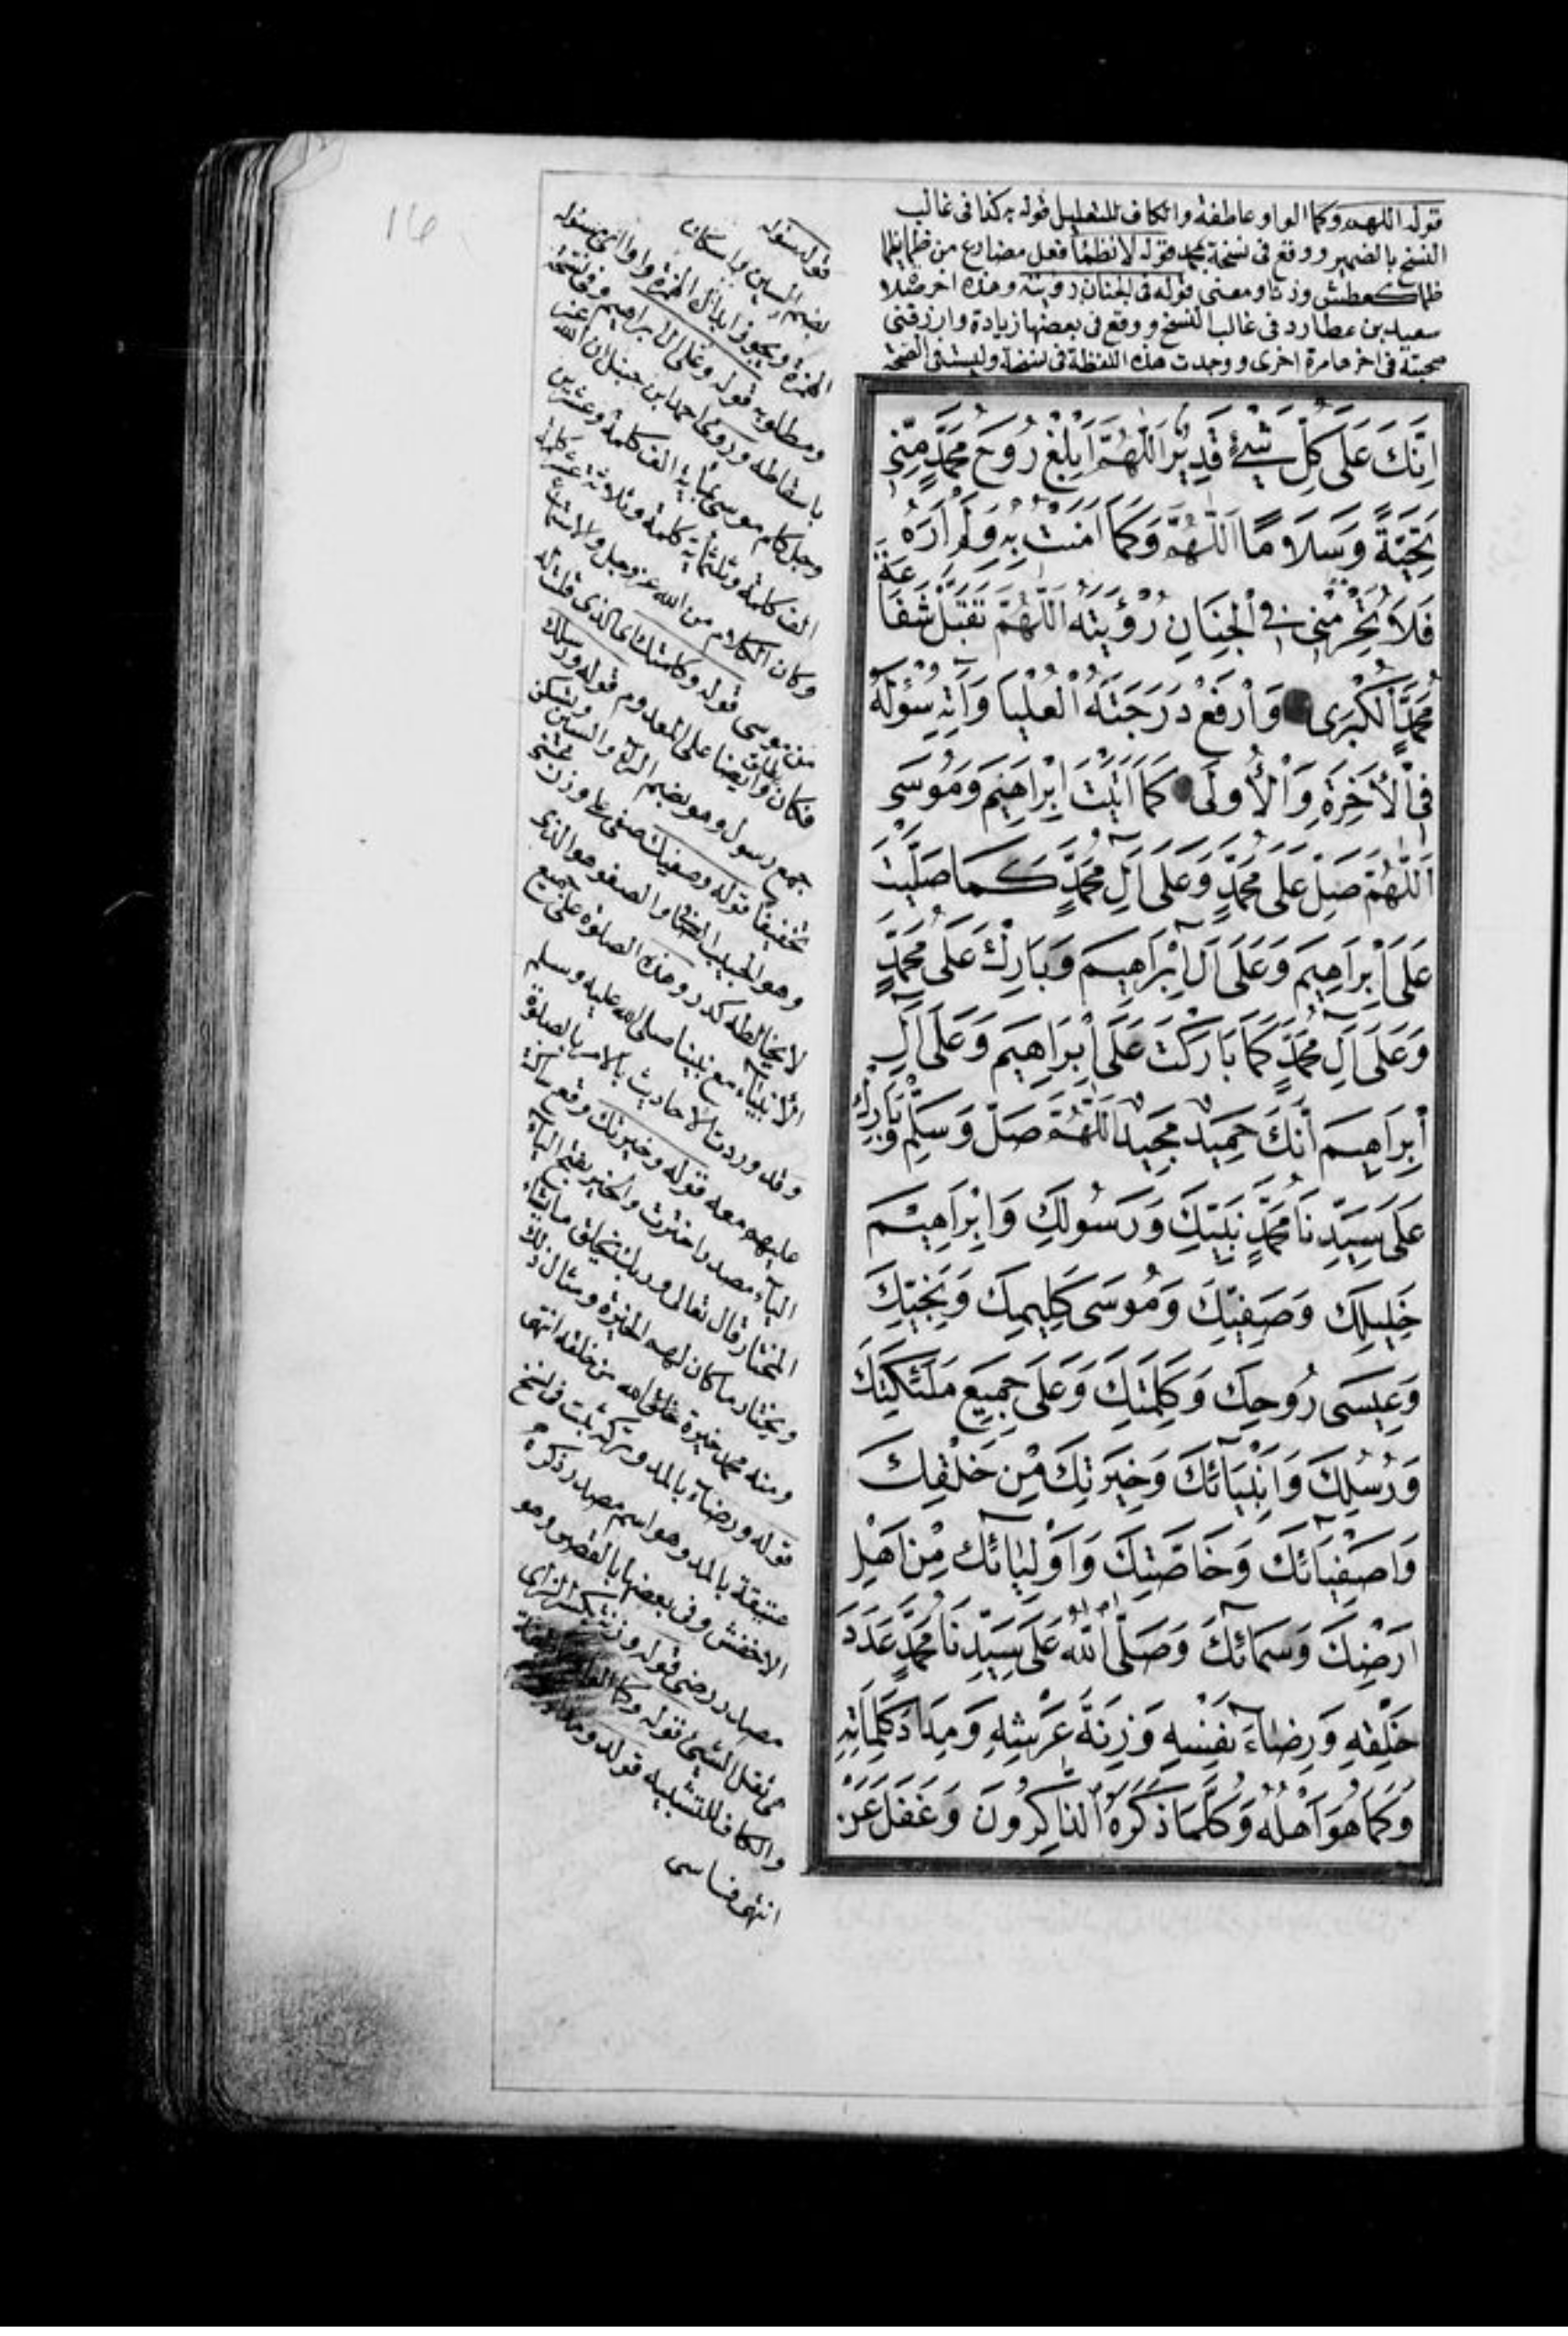 16
قوله اللهم وكما الواو عاطفة والكاف للتعليل قوله به كذا فى غالب
النسخ بالضمير ووقع فى نسخة بمحمد قوله لا نظمأ فعل مضارع من ظمأ يظمأ
ظمأ كعطش وزنا ومعنى قوله فى الجنان رؤيته وهذه اخر صلاة
سعيد بن عطارد فى غالب النسخ ووقع فى بعضها زيادة وارزقنى
صحبته فى اخرها مرة اخرى ووجدت هذه اللفظة فى نسخة وليست فى
اِنَّكَ عَلَى كُلِّ شَيْءٍ قَدِيرٌ اَللّٰهُمَّ اَبْلِغْ رُوحَ مُحَمَّدٍ مِنِّى
تَحِيَّةً وَسَلَامًا اَللّٰهُمَّ وَكَمَا اٰمَنْتُ بِهِ وَلَمْ اَرَهُ
فَلَا تَحْرِمْنِى فِى الْجِنَانِ رُؤْيَتَهُ اَللّٰهُمَّ تَقَبَّلْ شَفَاعَةَ
مُحَمَّدٍ الْكُبْرٰى وَارْفَعْ دَرَجَتَهُ الْعُلْيَا وَاٰتِهِ سُؤْلَهُ
فِى الْاٰخِرَةِ وَالْاُولٰى كَمَا اٰتَيْتَ اِبْرَاهِيمَ وَمُوسَى
اَللّٰهُمَّ صَلِّ عَلَى مُحَمَّدٍ وَعَلَى اٰلِ مُحَمَّدٍ كَمَا صَلَّيْتَ
عَلَى اِبْرَاهِيمَ وَعَلَى اٰلِ اِبْرَاهِيمَ وَبَارِكْ عَلَى مُحَمَّدٍ
وَعَلَى اٰلِ مُحَمَّدٍ كَمَا بَارَكْتَ عَلَى اِبْرَاهِيمَ وَعَلَى اٰلِ
اِبْرَاهِيمَ اِنَّكَ حَمِيدٌ مَجِيدٌ اَللّٰهُمَّ صَلِّ وَسَلِّمْ وَبَارِكْ
عَلَى سَيِّدِنَا مُحَمَّدٍ نَبِيِّكَ وَرَسُولِكَ وَاِبْرَاهِيمَ
خَلِيلِكَ وَصَفِيِّكَ وَمُوسَى كَلِيمِكَ وَنَجِيِّكَ
وَعِيسَى رُوحِكَ وَكَلِمَتِكَ وَعَلَى جَمِيعِ مَلٰئِكَتِكَ
وَرُسُلِكَ وَاَنْبِيَائِكَ وَخِيَرَتِكَ مِنْ خَلْقِكَ
وَاَصْفِيَائِكَ وَخَاصَّتِكَ وَاَوْلِيَائِكَ مِنْ اَهْلِ
اَرْضِكَ وَسَمَائِكَ وَصَلَّى اللّٰهُ عَلَى سَيِّدِنَا مُحَمَّدٍ عَدَدَ
خَلْقِهِ وَرِضَاءَ نَفْسِهِ وَزِنَةَ عَرْشِهِ وَمِدَادَ كَلِمَاتِهِ
وَكَمَا هُوَ اَهْلُهُ وَكُلَّمَا ذَكَرَهُ الذَّاكِرُونَ وَغَفَلَ عَنْ
قوله سؤله
بضم السين واسكان
الهمزة ويجوز ابدال الهمزة واوا اى مسئوله
ومطلوبه قوله وعلى ال ابراهيم وفى نسخة
باسقاطه وروى احمد ابن حنبل ان الله
وجل كلم موسى بماية الف كلمة وعشرين
الف كلمة وثلثماية كلمة وثلاثة عشر كلمة
وكان الكلام من الله عز وجل والاستماع
من موسى قوله وكلمتك
فكان وايضا على المعدوم قوله ورسلك
جمع رسول وهو بضم الرآء والسين وتسكن
تخفيفا قوله وصفيك صفى على وزن
وهو الحبيب والصفو هو الذى
لا يخالطه كدر وهذه الصلوة على جميع
الانبيآء مع نبينا صلى الله عليه وسلم
وقد وردت الاحاديث بالامر بالصلوة
عليهم معه قوله وخيرتك وقع
اليآء مصدر اخترت والخير بفتح اليآء
المختار قال تعالى وربك يخلق ما يشاء
ويختار ما كان لهم الخيرة ومثال ذلك
ومنه محمد خيرة خلق الله من خلقه انتهى
قوله ورضآء بالمد ثبت فى نسخ
عتيقة بالمد وهو اسم مصدر ذكره
الاخفش وفى بعضها بالقصر وهو
مصدر رضى قوله وزنة بكسر الزاى
هى ثقل الشئ قوله وكما
والكاف للتشبيه قوله
انتهى فاسى